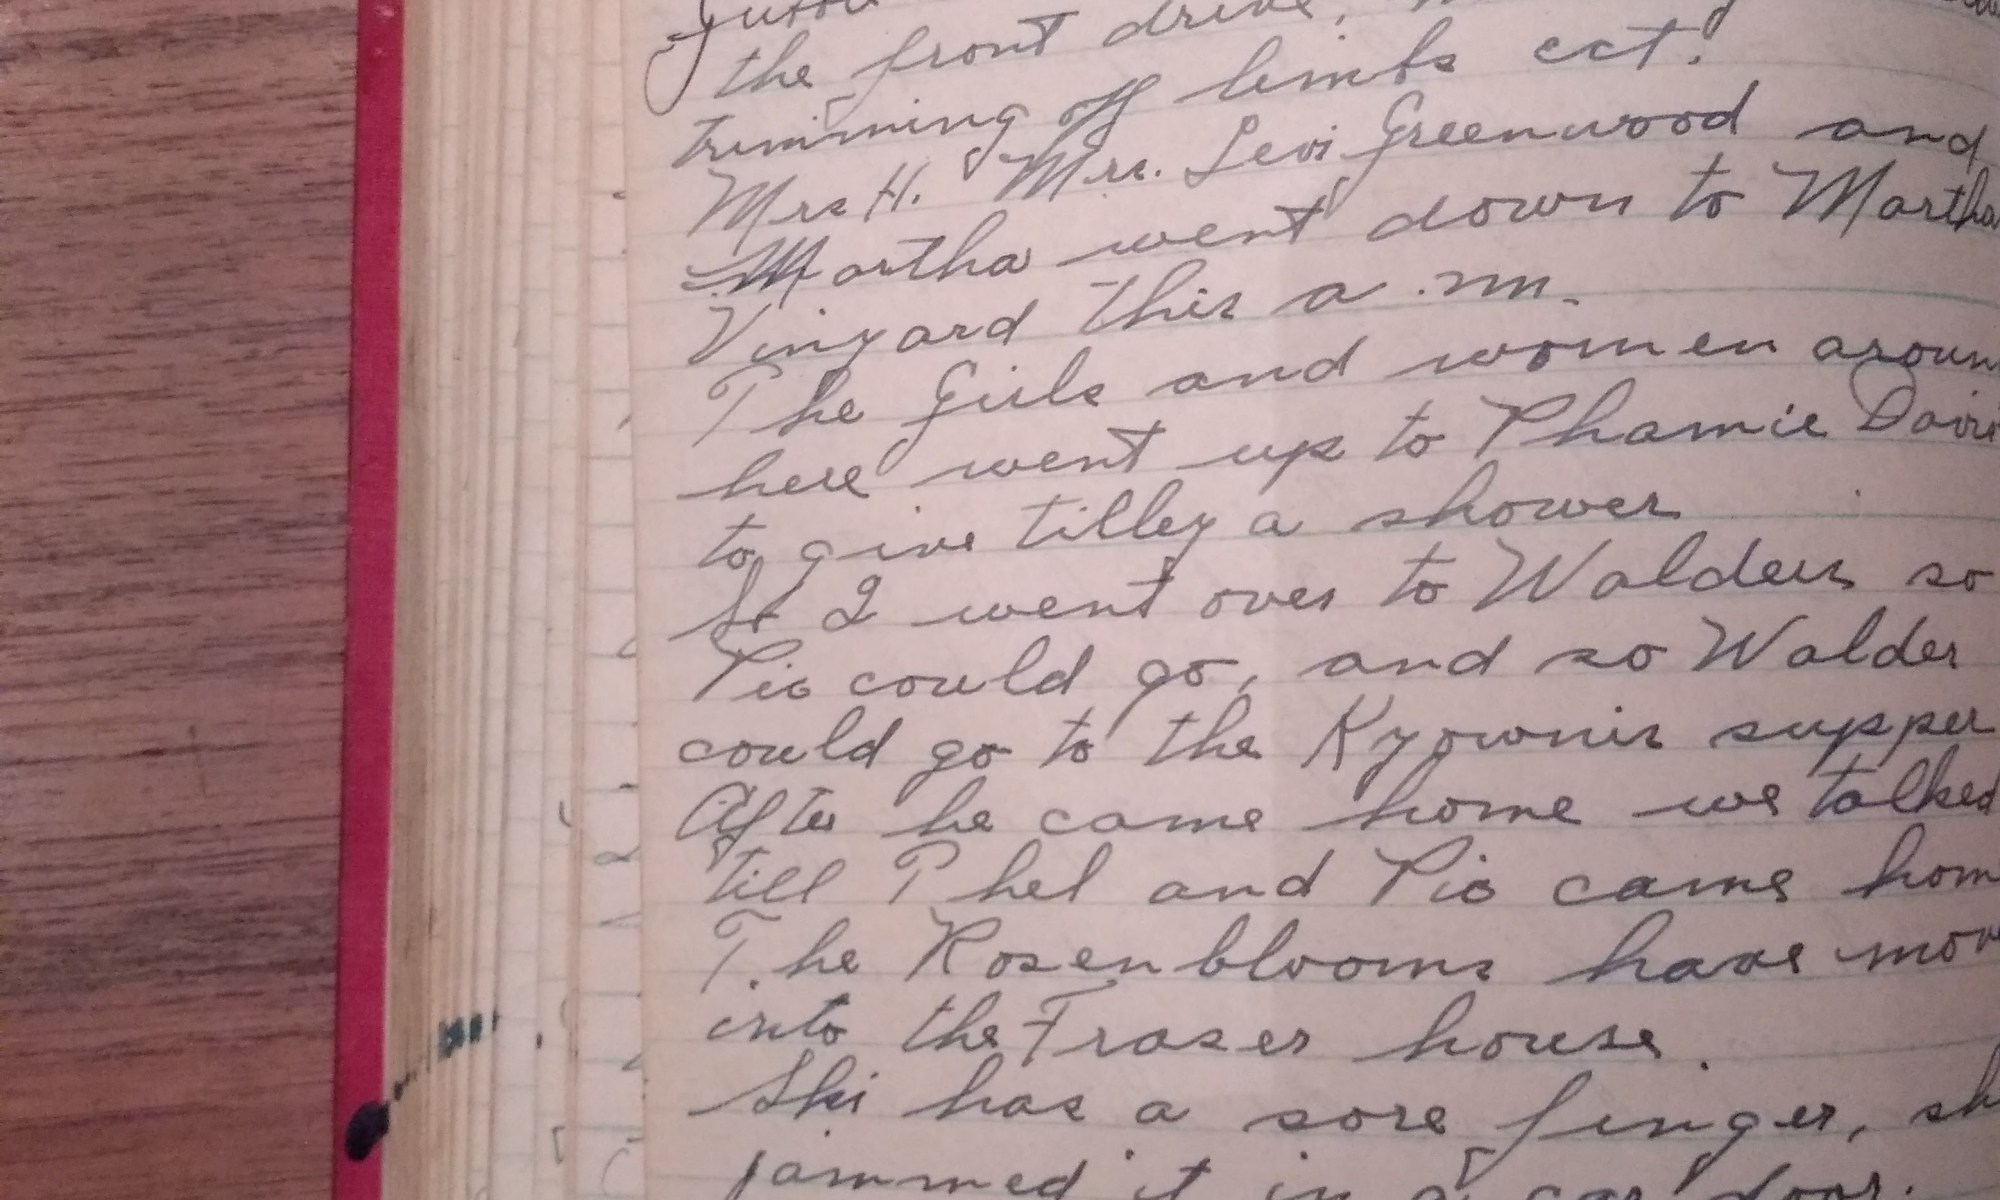 the front drive,
trimming off limbs ect.
Mrs H. Mrs. Levi Greenwood and
Martha went down to Martha
Vinyard this a.m.
The Girls and women aroun
here went up to Phamie Davis
to give tilley a shower
So I went over to Walders so
Pio could go, and so Walder
could go to the Kyownis supper
After he came home we talked
till Phel and Pio came hom
The Rosenblooms have mov
into the Fraser house.
Ski has a sore finger, sh
jammed it in a car door.